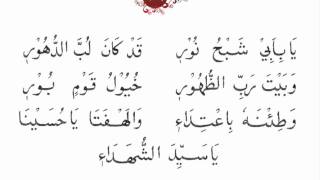 يَا بِاَبِيْ شَبْحُ نُوْرٖ قَدْ كَانَ لُبَّ الدُّهُوْرٖ
وَبَيْتَ رَبِّ الظُّهُوْرٖ خُيُوْلُ قَوْمٍ بُوْرٖ
وَطِئْنَهٗ بِاعْتِدَاءٖ وَالَهْفَتَا يَا حُسَيْنَا
يَا سَيِّدَ الشُّهَدَاءٖ